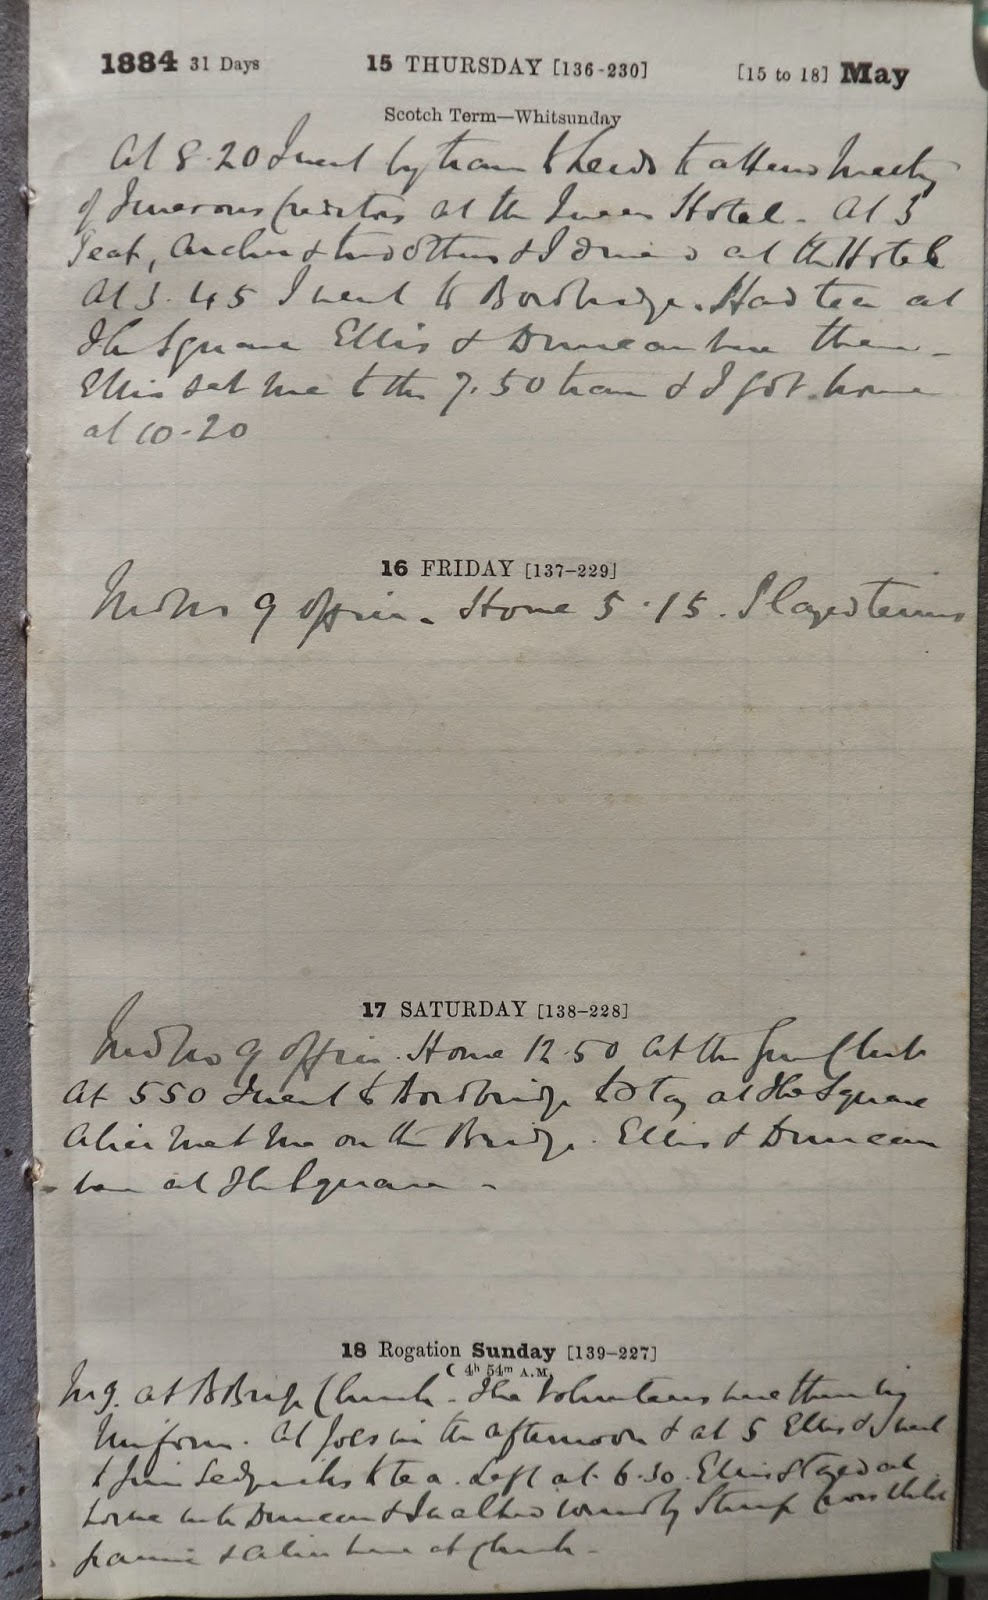 1884 31 Days 15 THURSDAY [136-230] [15 to 18] May
Scotch Term—Whitsunday
At 8.20 I went by train to Leeds to attend meeting
of creditors at the Queens Hotel - At 3
Peat, Archer & two others & I dined at the Hotel
At 3.45 I went to Sowbridge. Had tea at
The Square Ellis & Duncan were there -
Ellis set me to the 7.50 train & I got home
at 10-20
16 FRIDAY [137-229]
9 office. Home 5.15. Played tennis
17 SATURDAY [138-228]
9 office. Home 12.50 At the Gun Club
At 550 I went to Sowbridge to stay at The Square
Alice met me on the Bridge. Ellis & Duncan
were at The Square -
18 Rogation Sunday [139-227]
☾ 4h 54m A.M.
Mg. at SBridge Church - The Volunteers were there in
Uniform. At Joes in the afternoon & at 5 Ellis & I went
to Jim Sedgwicks to tea. Left at 6.30. Ellis stayed at
home with Duncan & I walked round by Stump Cross while
Fannie & Alice were at Church -